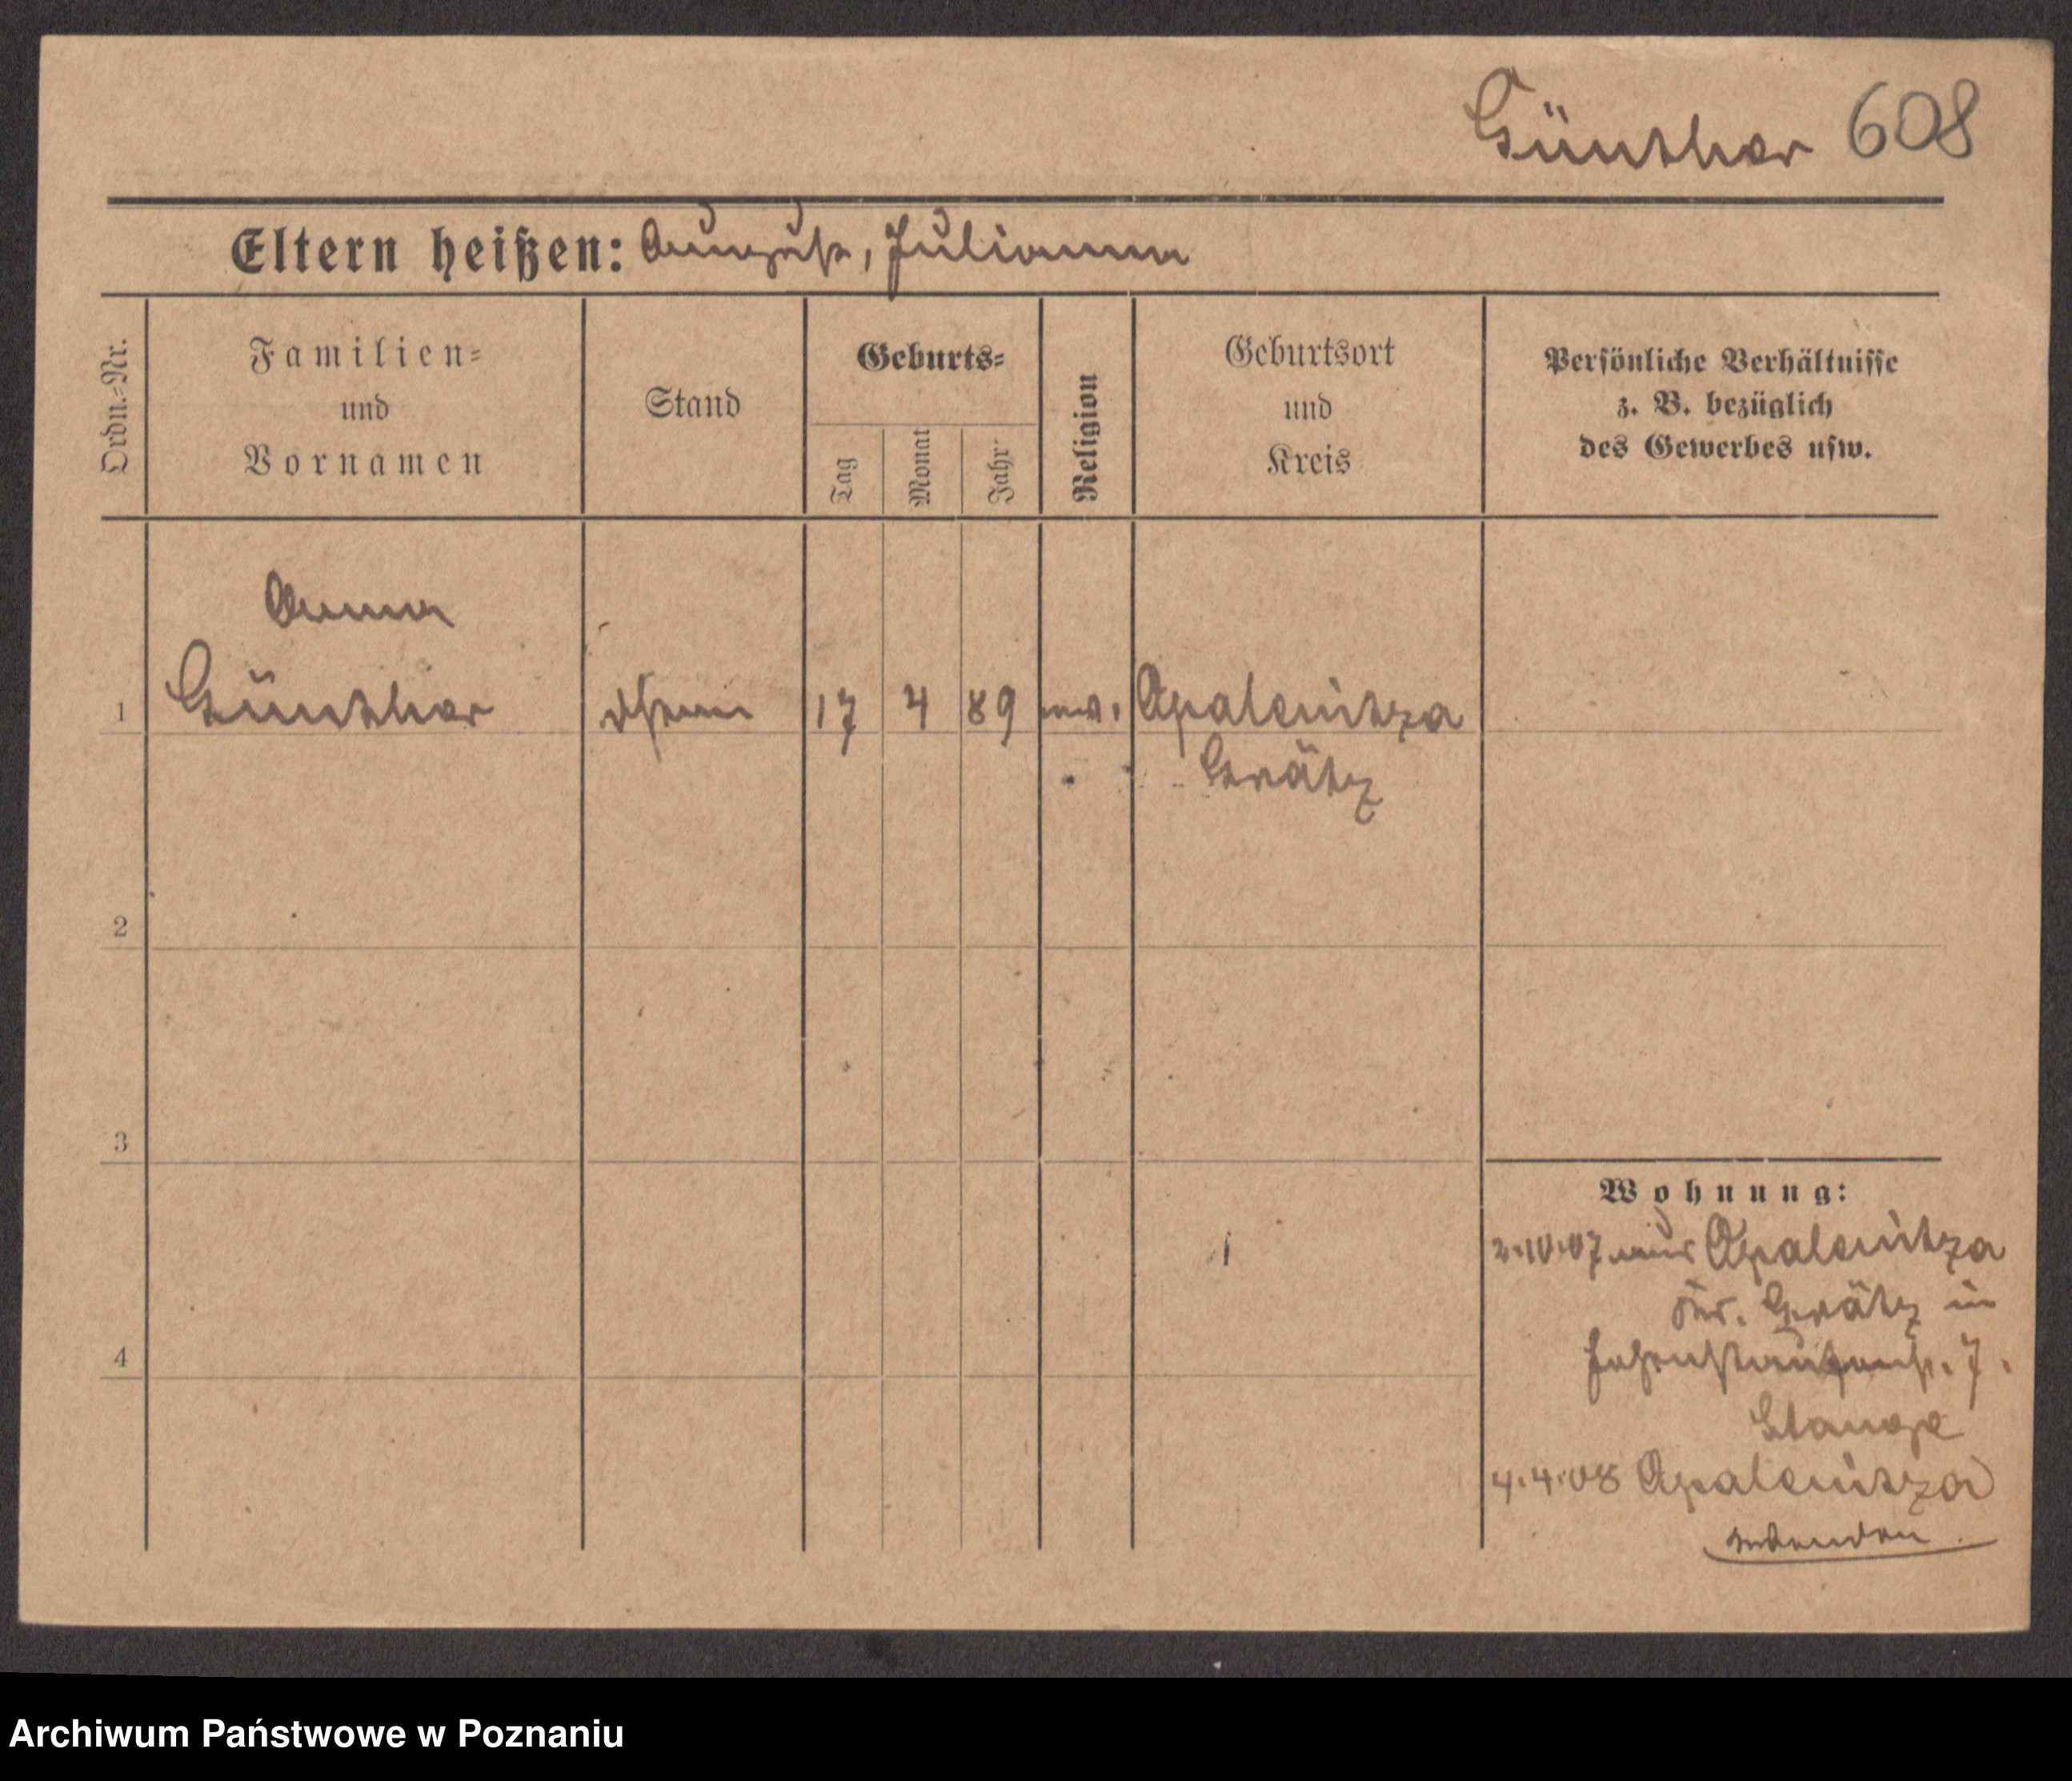 Günther 608
Eltern heißen: August, Julianna
Ordn.=Nr.
Familien=
und
Vornamen
Stand
Geburts=
Tag
Monat
Jahr
Religion
Geburtsort
und
Kreis
Persönliche Verhältnisse
z. B. bezüglich
des Gewerbes usw.
Anna
1 Günther 17 4 89 ev. Opalenitza
Grätz
2
3
4
Wohnung:
2.10.07 aus Opalenitza
Kr. Grätz in
7.
Stange
4.4.08 Opalenitza
Archiwum Państwowe w Poznaniu